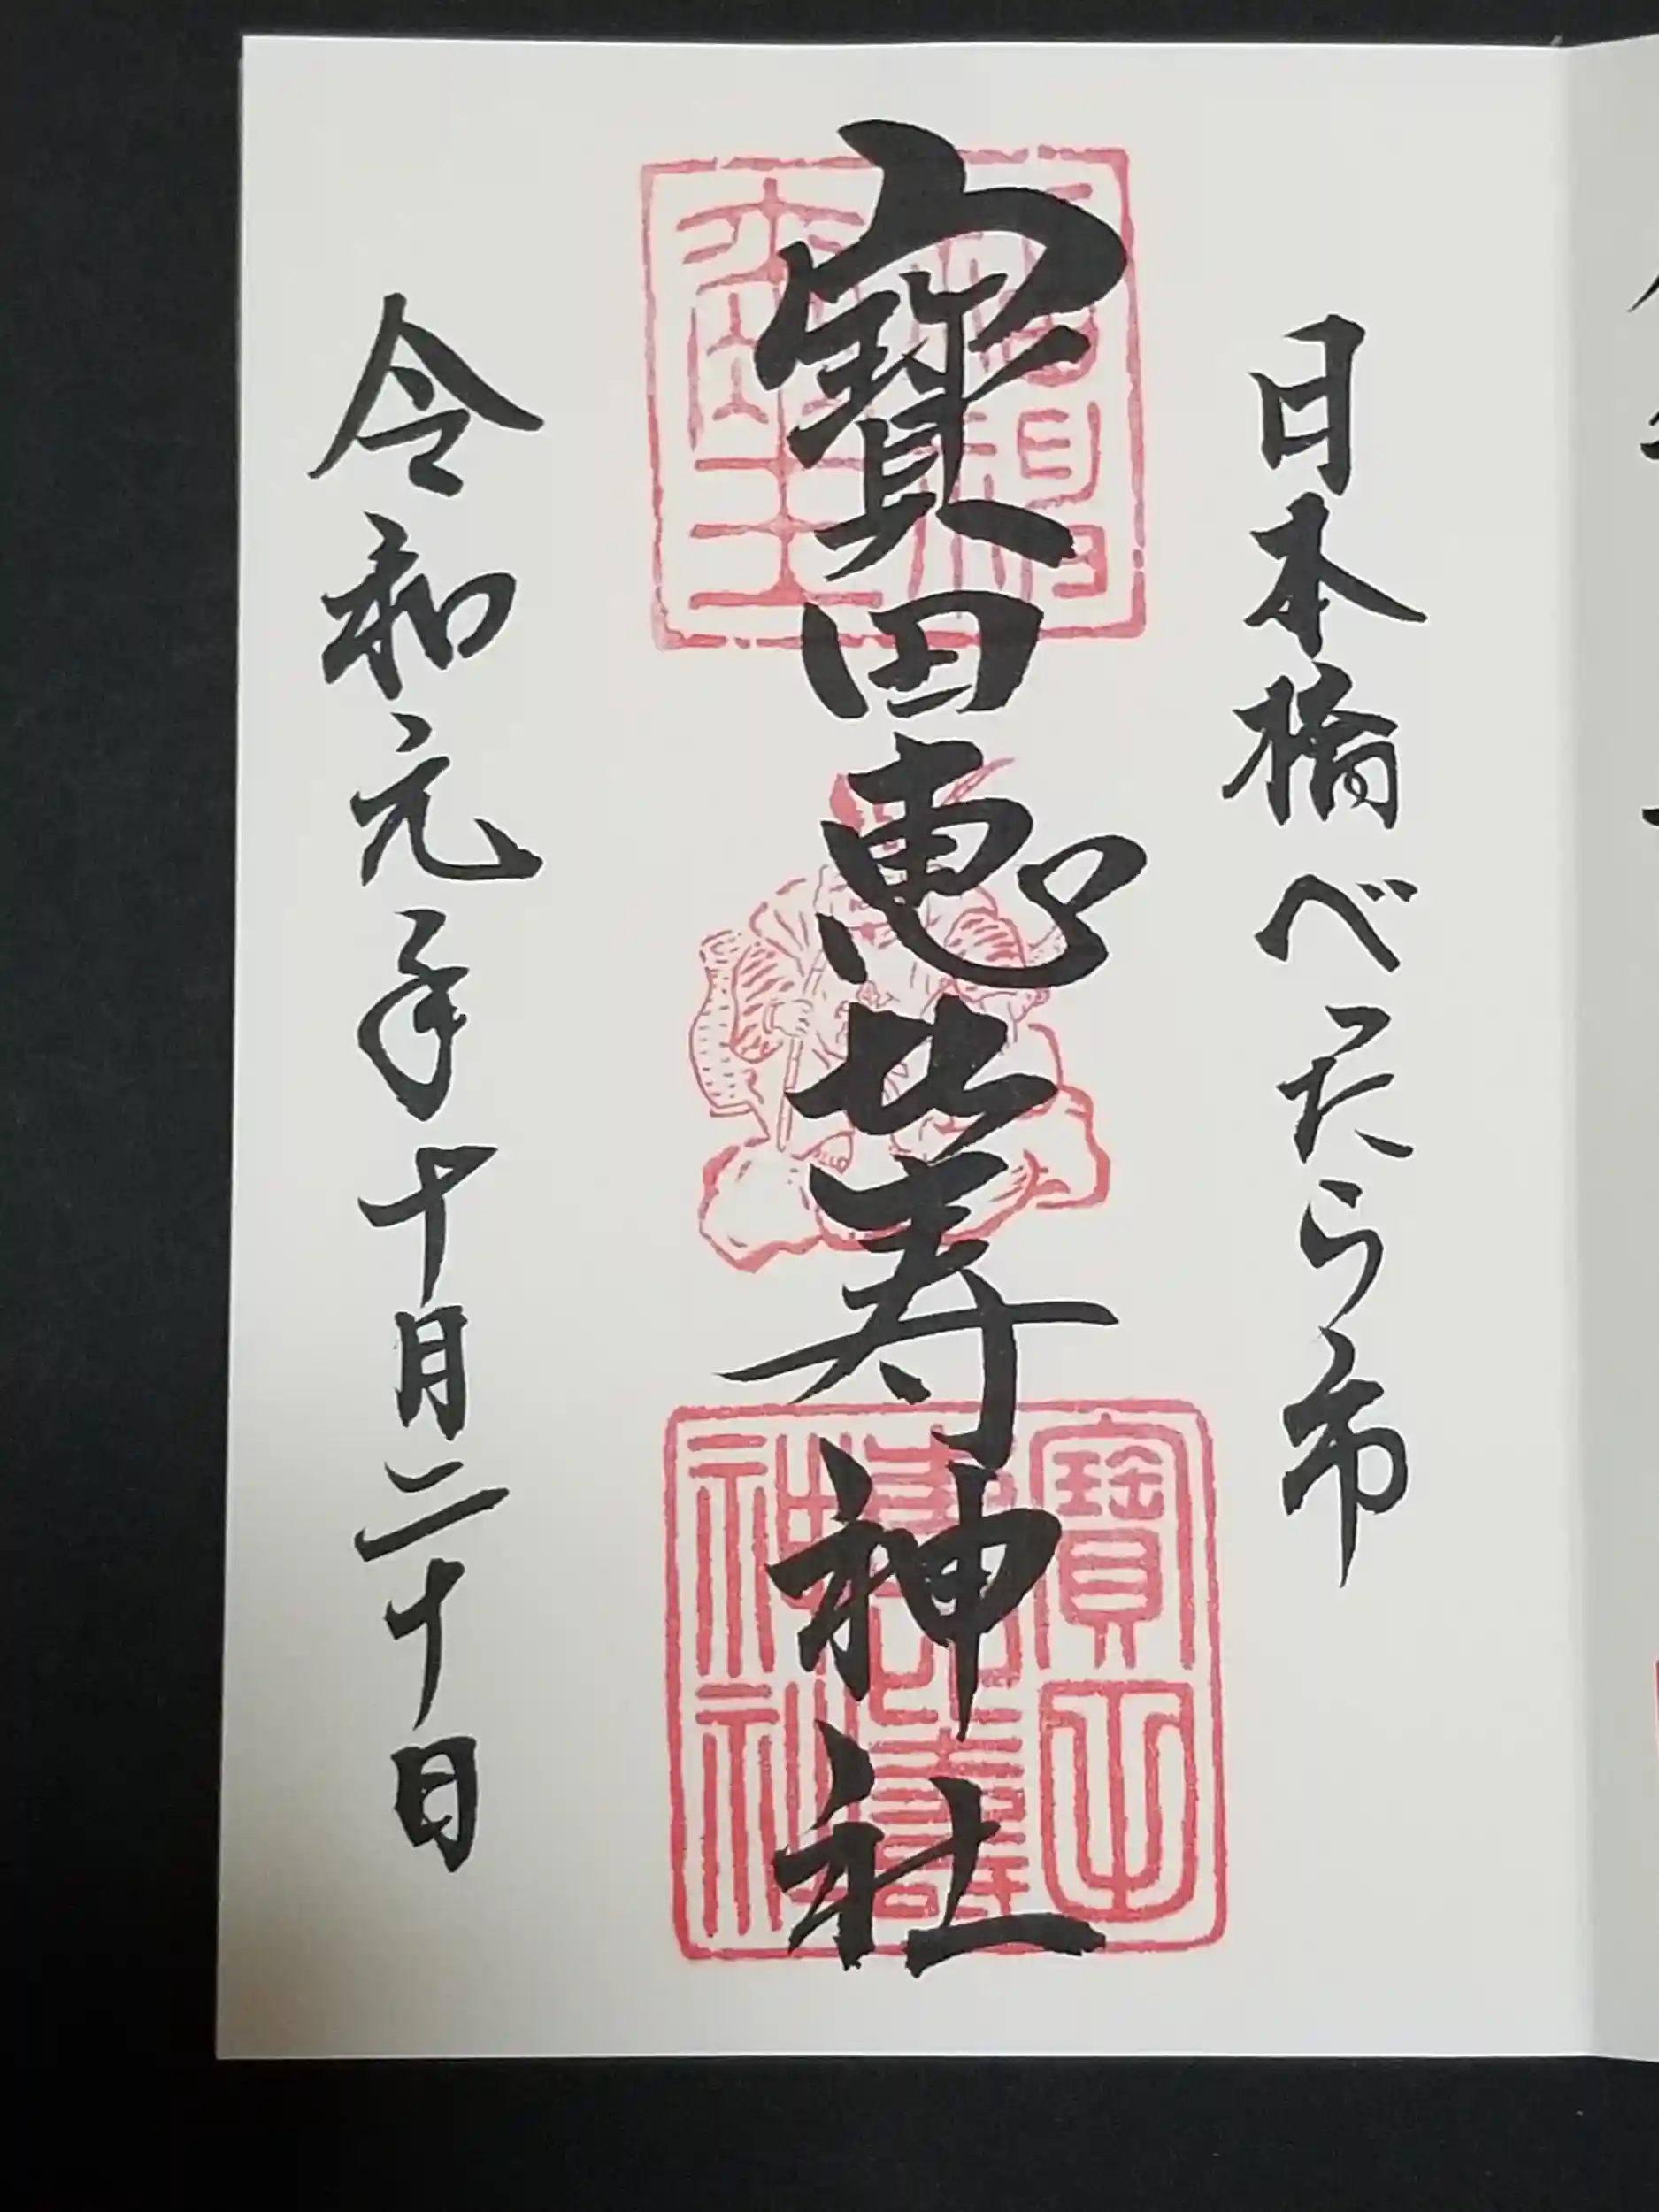 日本橋べったら市
寳田恵比寿神社
令和元年十月二十日
寳田
恵比壽
神社